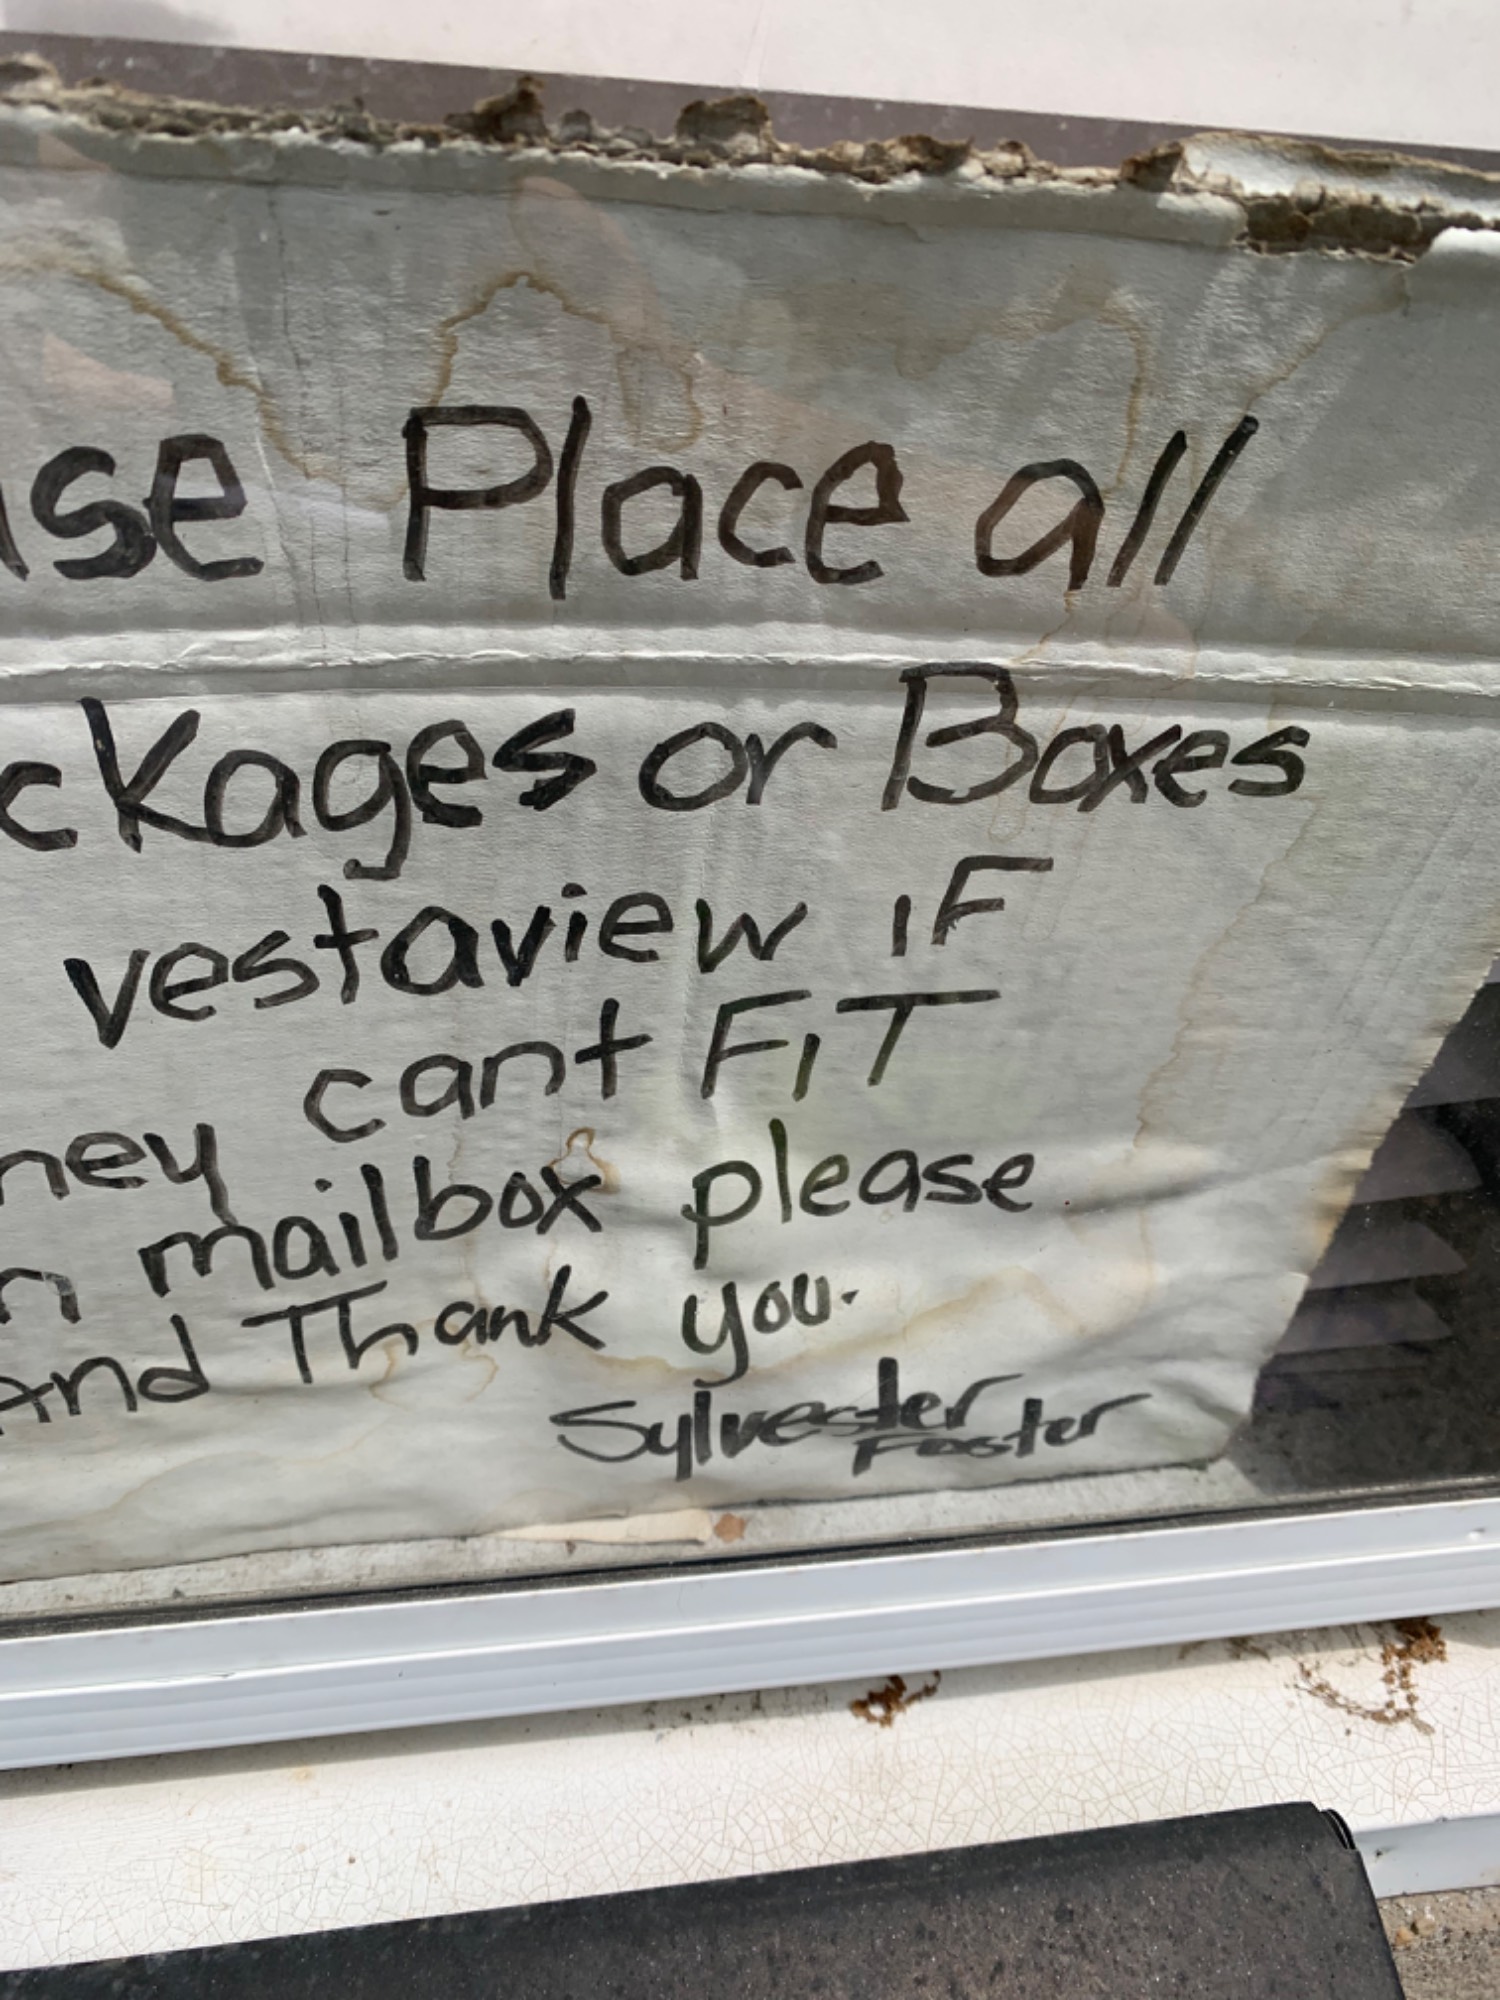 ase Place all
ckages or Boxes
vestaview iF
ney cant FiT
n mailbox please
And Thank you.
Sylvester
Foster